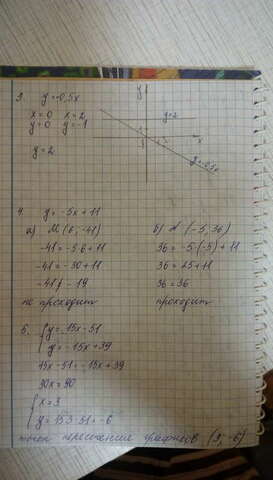 3. y=-0,5x
x=0 x=2
y=0 y=-1
y=2
y
y=2
x
y=-0,5x
4. y = -5x + 11
а) M (6; -41)
-41 = -5·6 + 11
-41 = -30 + 11
-41 ≠ -19
не проходит
б) N (-5; 36)
36 = -5·(-5) + 11
36 = 25 + 11
36 = 36
проходит
5. { y = 15x - 51
y = -15x + 39
15x - 51 = -15x + 39
30x = 90
{ x = 3
y = 15·3 - 51 = -6
точка пересечения графиков (3; -6)